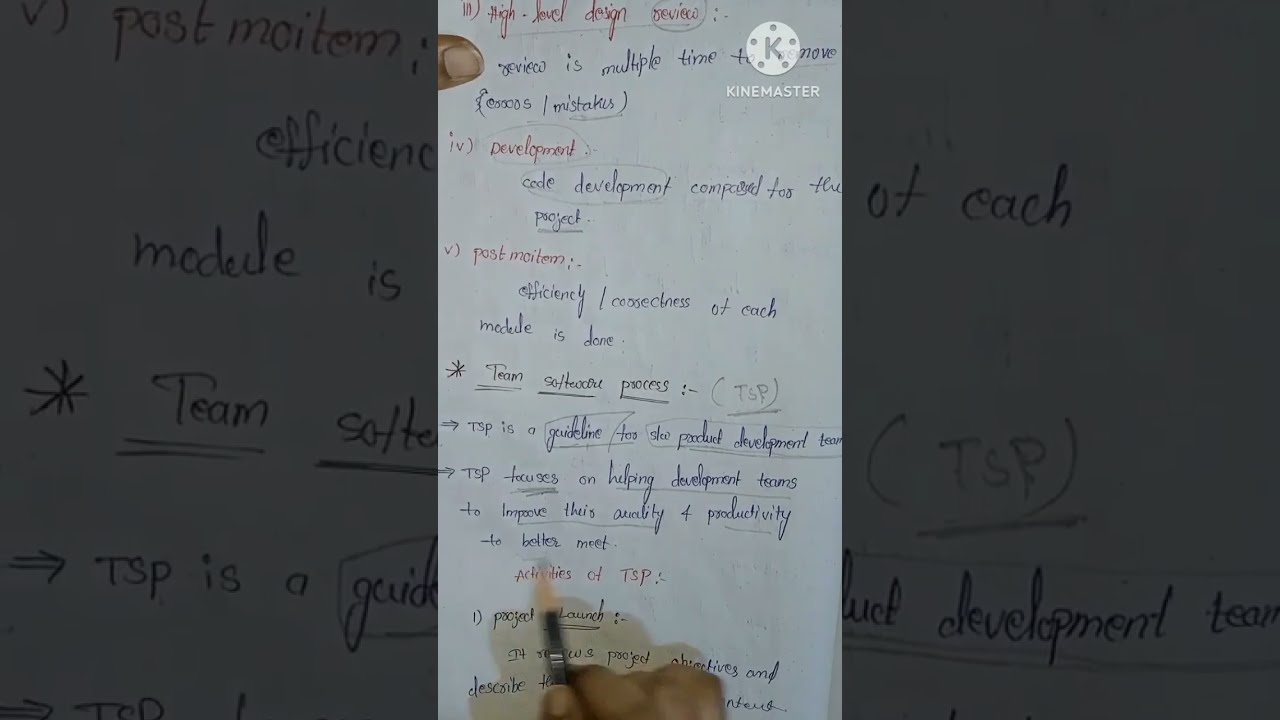 iii) High-level design review :-
review is multiple time to remove
{errors / mistakes)
iv) Development :-
code development compared for the
project.
v) postmoitem :-
efficiency / correctness of each
module is done.
* Team software process :- (TSP)
⇒ TSP is a guideline for s/w product development team
⇒ TSP focuses on helping development teams
to Improve their quality & productivity
to better meet.
Activities of TSP :-
1) project Launch :-
It reviews project objectives and
describe
KINEMASTER
v) postmoitem :
efficienc
of each
module is
* Team softw
(TSP)
⇒ TSP is a guid
duct development team
⇒ TSP